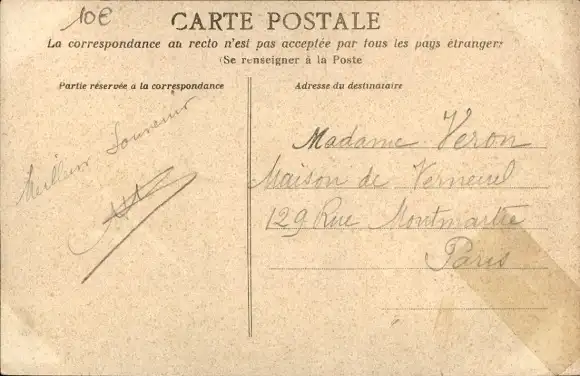 10€
CARTE POSTALE
La correspondance au recto n'est pas acceptée par tous les pays étrangers
(Se renseigner à la Poste
Partie réservée a la correspondance
Adresse du destinataire
Meilleur Souvenir
Madame Veron
Maison de Verneuil
129 Rue Montmartre
Paris